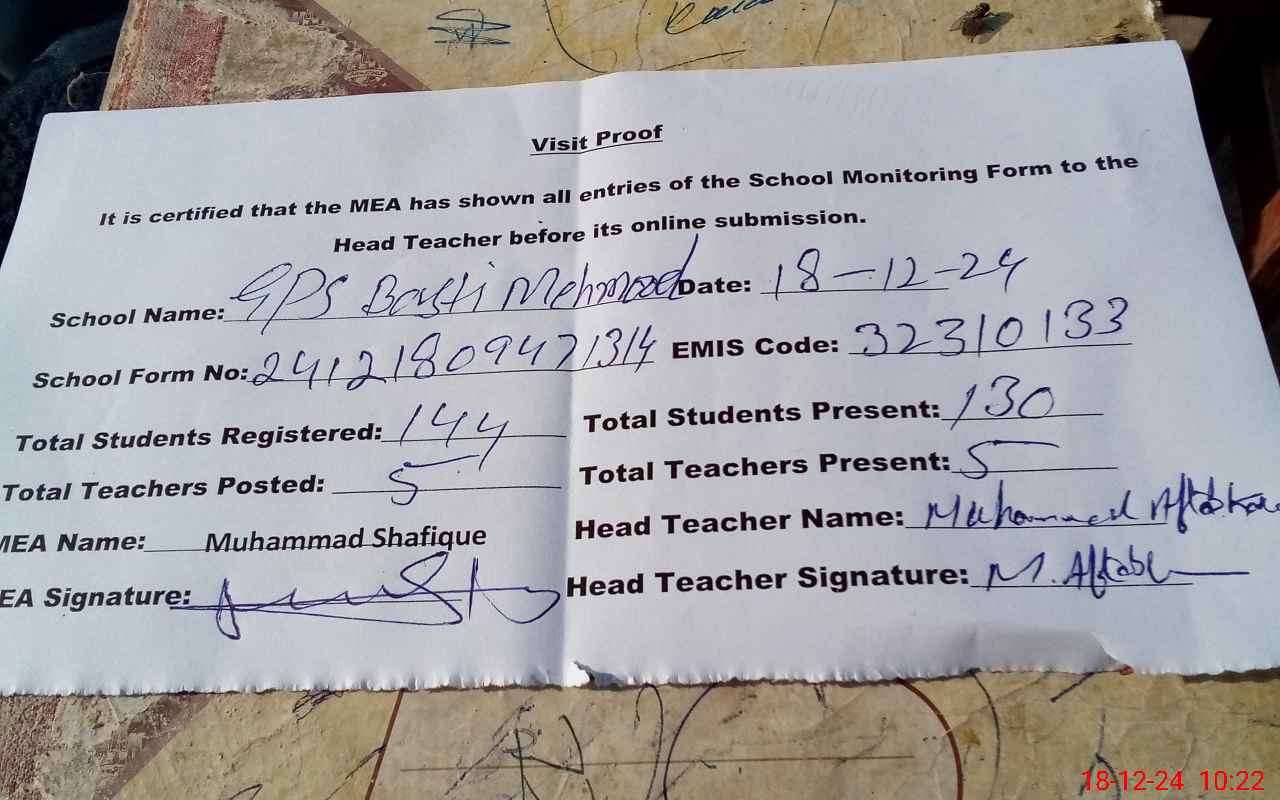 Visit Proof
It is certified that the MEA has shown all entries of the School Monitoring Form to the
Head Teacher before its online submission.
School Name: GPS Basti Mehmood Date: 18-12-24
School Form No: 24121809471314 EMIS Code: 32310133
Total Students Registered: 144 Total Students Present: 130
Total Teachers Posted: 5 Total Teachers Present: 5
MEA Name: Muhammad Shafique Head Teacher Name: Muhammad Aftab
EA Signature: Head Teacher Signature: M. Aftab
18-12-24 10:22